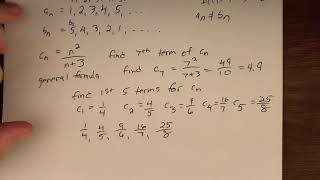 aₙ = 1, 2, 3, 4, 5, ...
bₙ = 5, 4, 3, 2, 1, ..... aₙ ≠ bₙ
cₙ = n²/(n+3) find 7th term of cₙ
general formula find c₇ = 7²/(7+3) = 49/10 = 4.9
find 1st 5 terms for cₙ
c₁ = 1/4 c₂ = 4/5 c₃ = 9/6 c₄ = 16/7 c₅ = 25/8
1/4, 4/5, 9/6, 16/7, 25/8